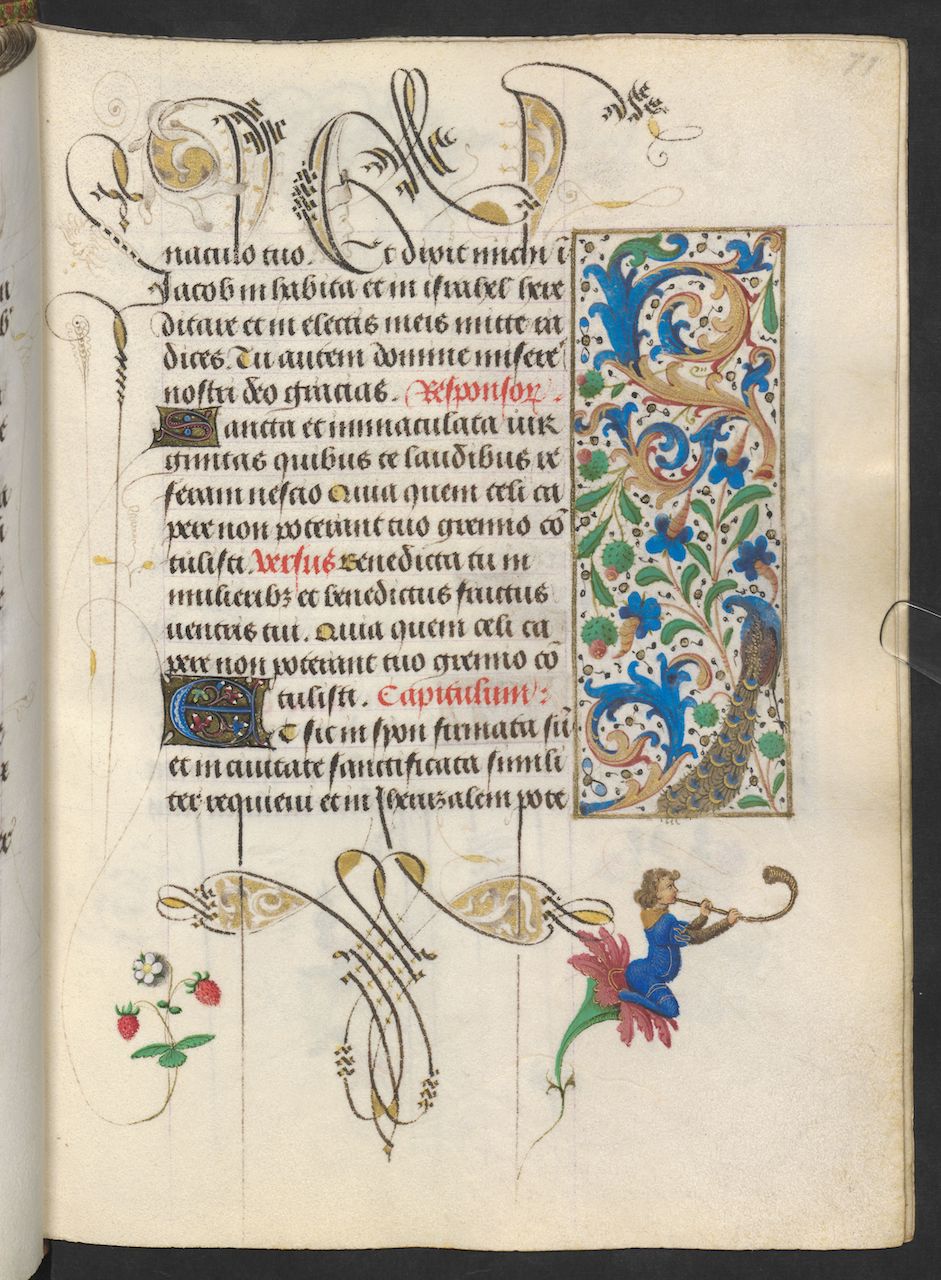 71
naculo tuo. Et dixit michi ī
Jacob inhabita et in israhel here
ditare et in electis meis mitte ra
dices. Tu autem domine misere
nostri deo gracias. Responsor.
Sancta et immaculata uir
ginitas quibus te laudibus re
feram nescio Quia quem celi ca
pere non poterant tuo gremio cō
tulisti. Versus Benedicta tu in
mulieribꝫ et benedictus fructus
uentris tui. Quia quem celi ca
pere non poterant tuo gremio cō
tulisti. Capitulum:
Et sic in syon firmata sū
et in ciuitate sanctificata simili
ter requieui et in Iherusalem pote